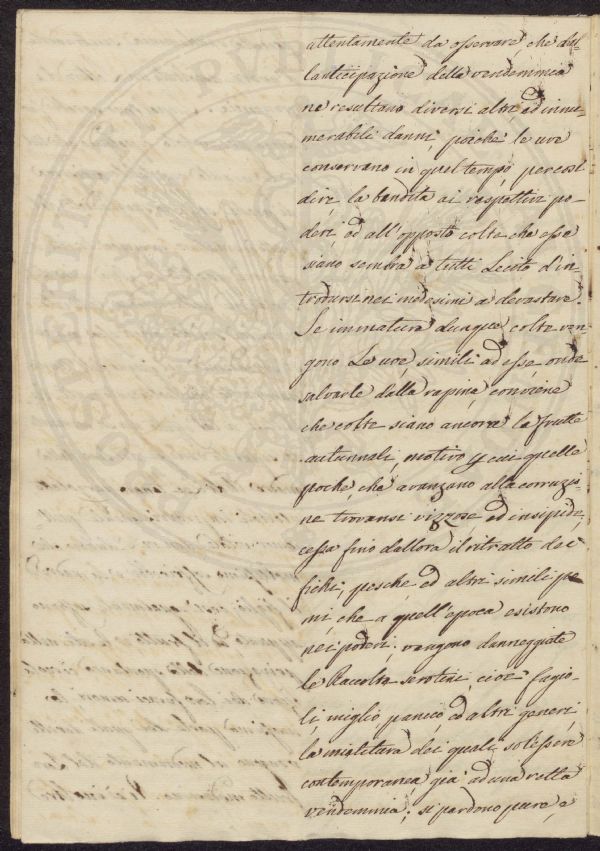 attentamente da osservare, che dal-
l'anticipazione della vendemmia
ne resultano diversi altri ed innu-
merabili danni, poiché le uve
conservano in quel tempo, per così
dire la bandita ai respettivi po-
deri, ed all'opposto colte che esse
siano sembra a tutti lecito d'in-
trodursi nei medesimi a devastare.
Se immatura dunque colte ven-
gono le uve, simili ad esse onde
salvarle dalla rapina conviene
che colte siano ancora le frutte
autunnali, motivo p cui quelle
poche che avanzano alla corruzio-
ne trovansi vizzose ed insipide,
cessa fino d'allora il ritratto dei
fichi, pesche ed altri simili po-
mi, che a quell'epoca esistono
nei poderi. vengono danneggiate
le Raccolte serotine, cioe fagio-
li miglio panico ed altri generi
la mietitura dei quali suol essere
contemporanea già ad una retta
vendemmia; si perdono pure, e